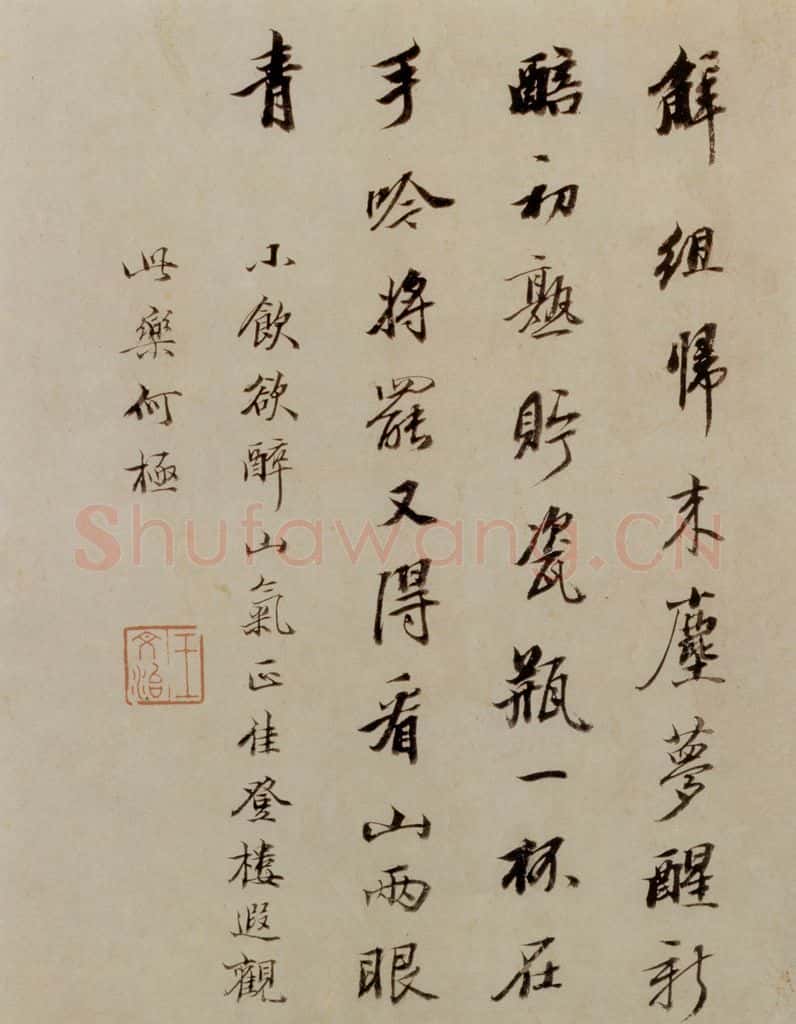 解組帰来塵夢醒新
醅初熟貯瓷瓶一杯在
手吟將罷又得看山兩眼
青
小飲欲醉山氣正佳登樓遐觀
此樂何極
王文治
Shufawang.CN